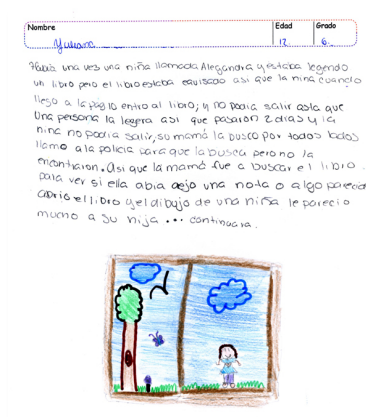 Nombre Edad Grado
Yuliana 12 6
Había una vez una niña llamada Alegandra y estaba legendo
un libro pero el libro estaba equisado asi que la niña cuando
llego a la pág 10 entro al libro; y no podia salir asta que
una persona la legera asi que pasaron 2 dias y la
nina no podia salir, su mamá la busco por todos lados
llamo a la policia para que la busca pero no la
encontraron. Asi que la mamá fue a buscar el libro.
para ver si ella abia dejo una nota o algo parecid
abrio el libro y el dibujo de una niña le parecio
mucho a su hija ... continuara.